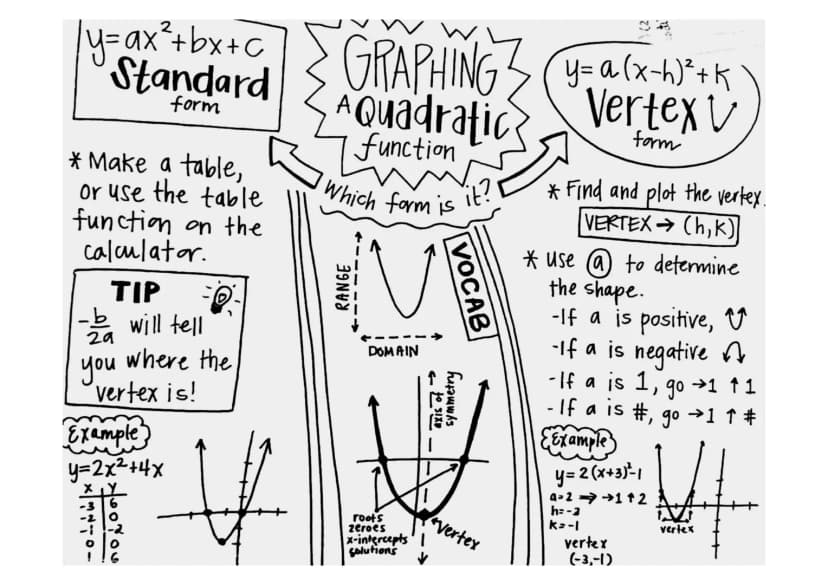 y=ax²+bx+c
Standard
form
GRAPHING
A Quadratic
function
Which form is it?
y=a(x-h)²+k
Vertex
form
* Make a table,
or use the table
function on the
calculator.
TIP
-b/2a will tell
you where the
vertex is!
Example
y=2x²+4x
X Y
-3 6
-2 0
-1 -2
0 0
1 6
VOCAB
RANGE
DOMAIN
axis of
symmetry
roots
zeroes
x-intercepts
solutions
vertex
* Find and plot the vertex.
VERTEX → (h,k)
* Use a to determine
the shape.
-If a is positive,
-If a is negative
-If a is 1, go →1 ↑1
-If a is #, go →1 ↑#
Example
y=2(x+3)²-1
a=2 ⇒ →1 ↑2
h=-3
k=-1
vertex
(-3,-1)
vertex